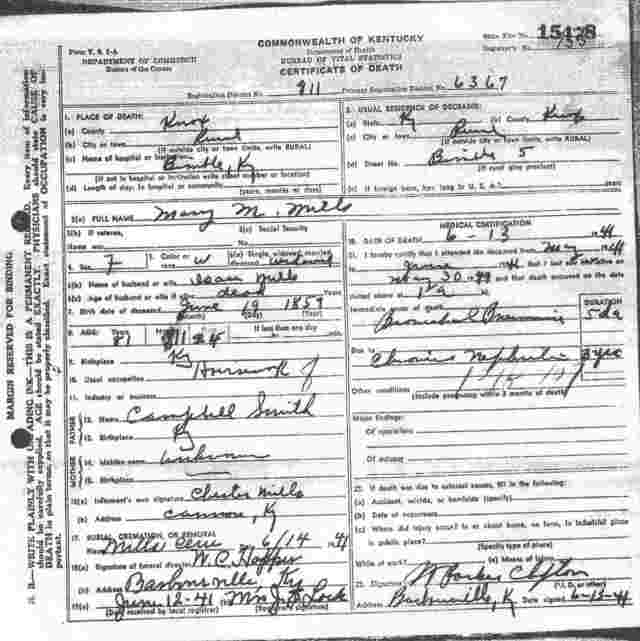 COMMONWEALTH OF KENTUCKY
Form V. S. 1-A
Department of Health
State File No. 15428
DEPARTMENT OF COMMERCE
BUREAU OF VITAL STATISTICS
Registrar's No.
Bureau of the Census
CERTIFICATE OF DEATH
Registration District No. 911 Primary Registration District No. 6367
MARGIN RESERVED FOR BINDING
N. B.—WRITE PLAINLY WITH UNFADING INK—THIS IS A PERMANENT RECORD. Every item of information
should be carefully supplied. AGE should be stated EXACTLY. PHYSICIANS should state CAUSE OF
DEATH in plain terms, so that it may be properly classified. Exact statement of OCCUPATION is very important.
1. PLACE OF DEATH:
(a) County Knox
(b) City or town Rural
(If outside city or town limits, write RURAL)
(c) Name of hospital or institution
Ky
(If not in hospital or institution write street number or location)
(d) Length of stay: In hospital or community
(years, months or days)
2. USUAL RESIDENCE OF DECEASED:
(a) State Ky (b) County Knox
(c) City or town Rural
(If outside city or town limits, write RURAL)
(d) Street No.
(If rural give precinct)
(e) If foreign born, how long in U. S. A.? years
3(a) FULL NAME Mary M. Mills
3(b) If veteran,
Name war
3(c) Social Security
No.
4. Sex F
5. Color or W
6(a) Single, widowed, married
divorced Widowed
6(b) Name of husband or wife Isaac Mills
6(c) Age of husband or wife if dead Years
7. Birth date of deceased June 19 1859
(Month) (Day) (Year)
8. AGE: Years Months Days If less than one day
81 11 24 min.
9. Birthplace Ky
10. Usual occupation Housework
11. Industry or business
FATHER
12. Name Campbell Smith
13. Birthplace Ky
MOTHER
14. Maiden name unknown
15. Birthplace
16(a) Informant's own signature Chester Mills
(b) Address Cannon, Ky
17. BURIAL, CREMATION, OR REMOVAL
Mills Cem 6/14 1941
18(a) Signature of funeral director W. C. Hopper
(b) Address Barbourville, Ky
19(a) June 12-41 Mrs
(Date received by local registrar) (Registrar's signature)
MEDICAL CERTIFICATION
20. DATE OF DEATH 6-13 1941
21. I hereby certify that I attended the deceased from May 1941
to June 1941 that I last
May 30 and that death occurred on the date
stated above at M
Immediate cause of death
Bronchial Pneumonia
DURATION
5 da
Due to Chronic Nephritis 3 yrs
Other conditions
(Include pregnancy within 3 months of death)
Major findings:
Of operations
Of autopsy
22. If death was due to external causes, fill in the following:
(a) Accident, suicide, or homicide (specify)
(b) Date of occurrence
(c) Where did injury occur? In or about home, on farm, in industrial place
in public place?
(Specify type of place)
While at work? (e) Means of injury
23. Signature
(M. D. or other)
Address Barbourville, Ky Date signed 6-13-41